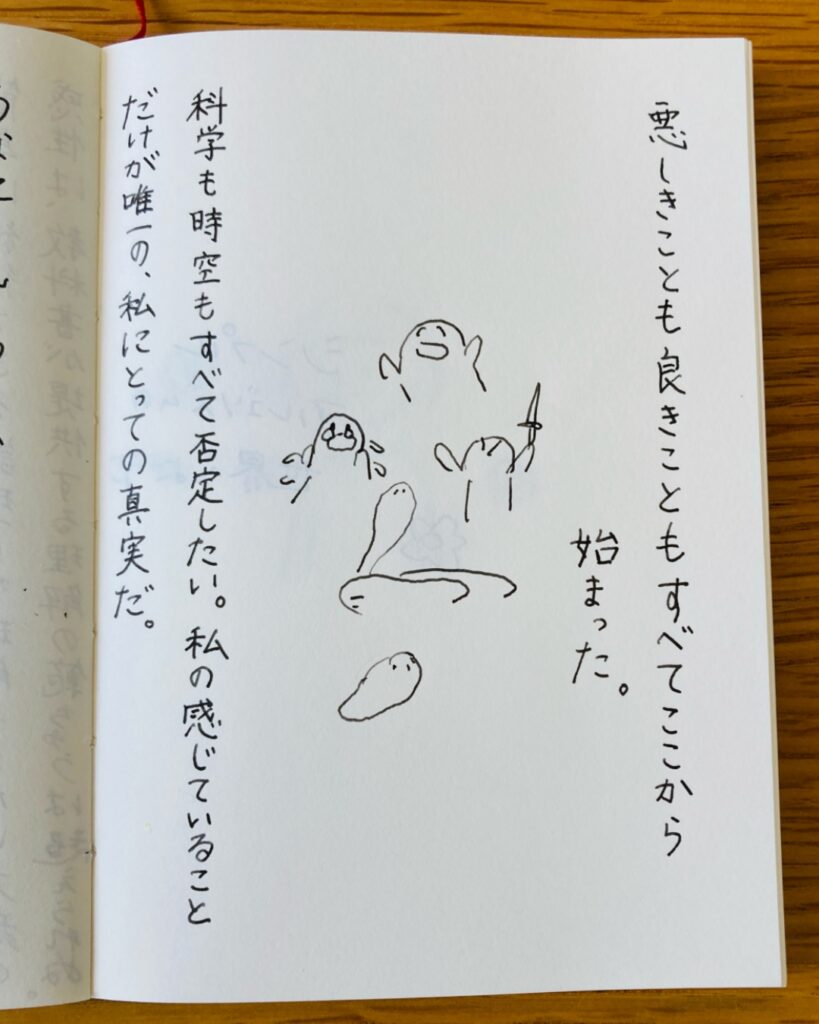 悪しきことも良きこともすべてここから
始まった。
科学も時空もすべて否定したい。私の感じていること
だけが唯一の、私にとっての真実だ。